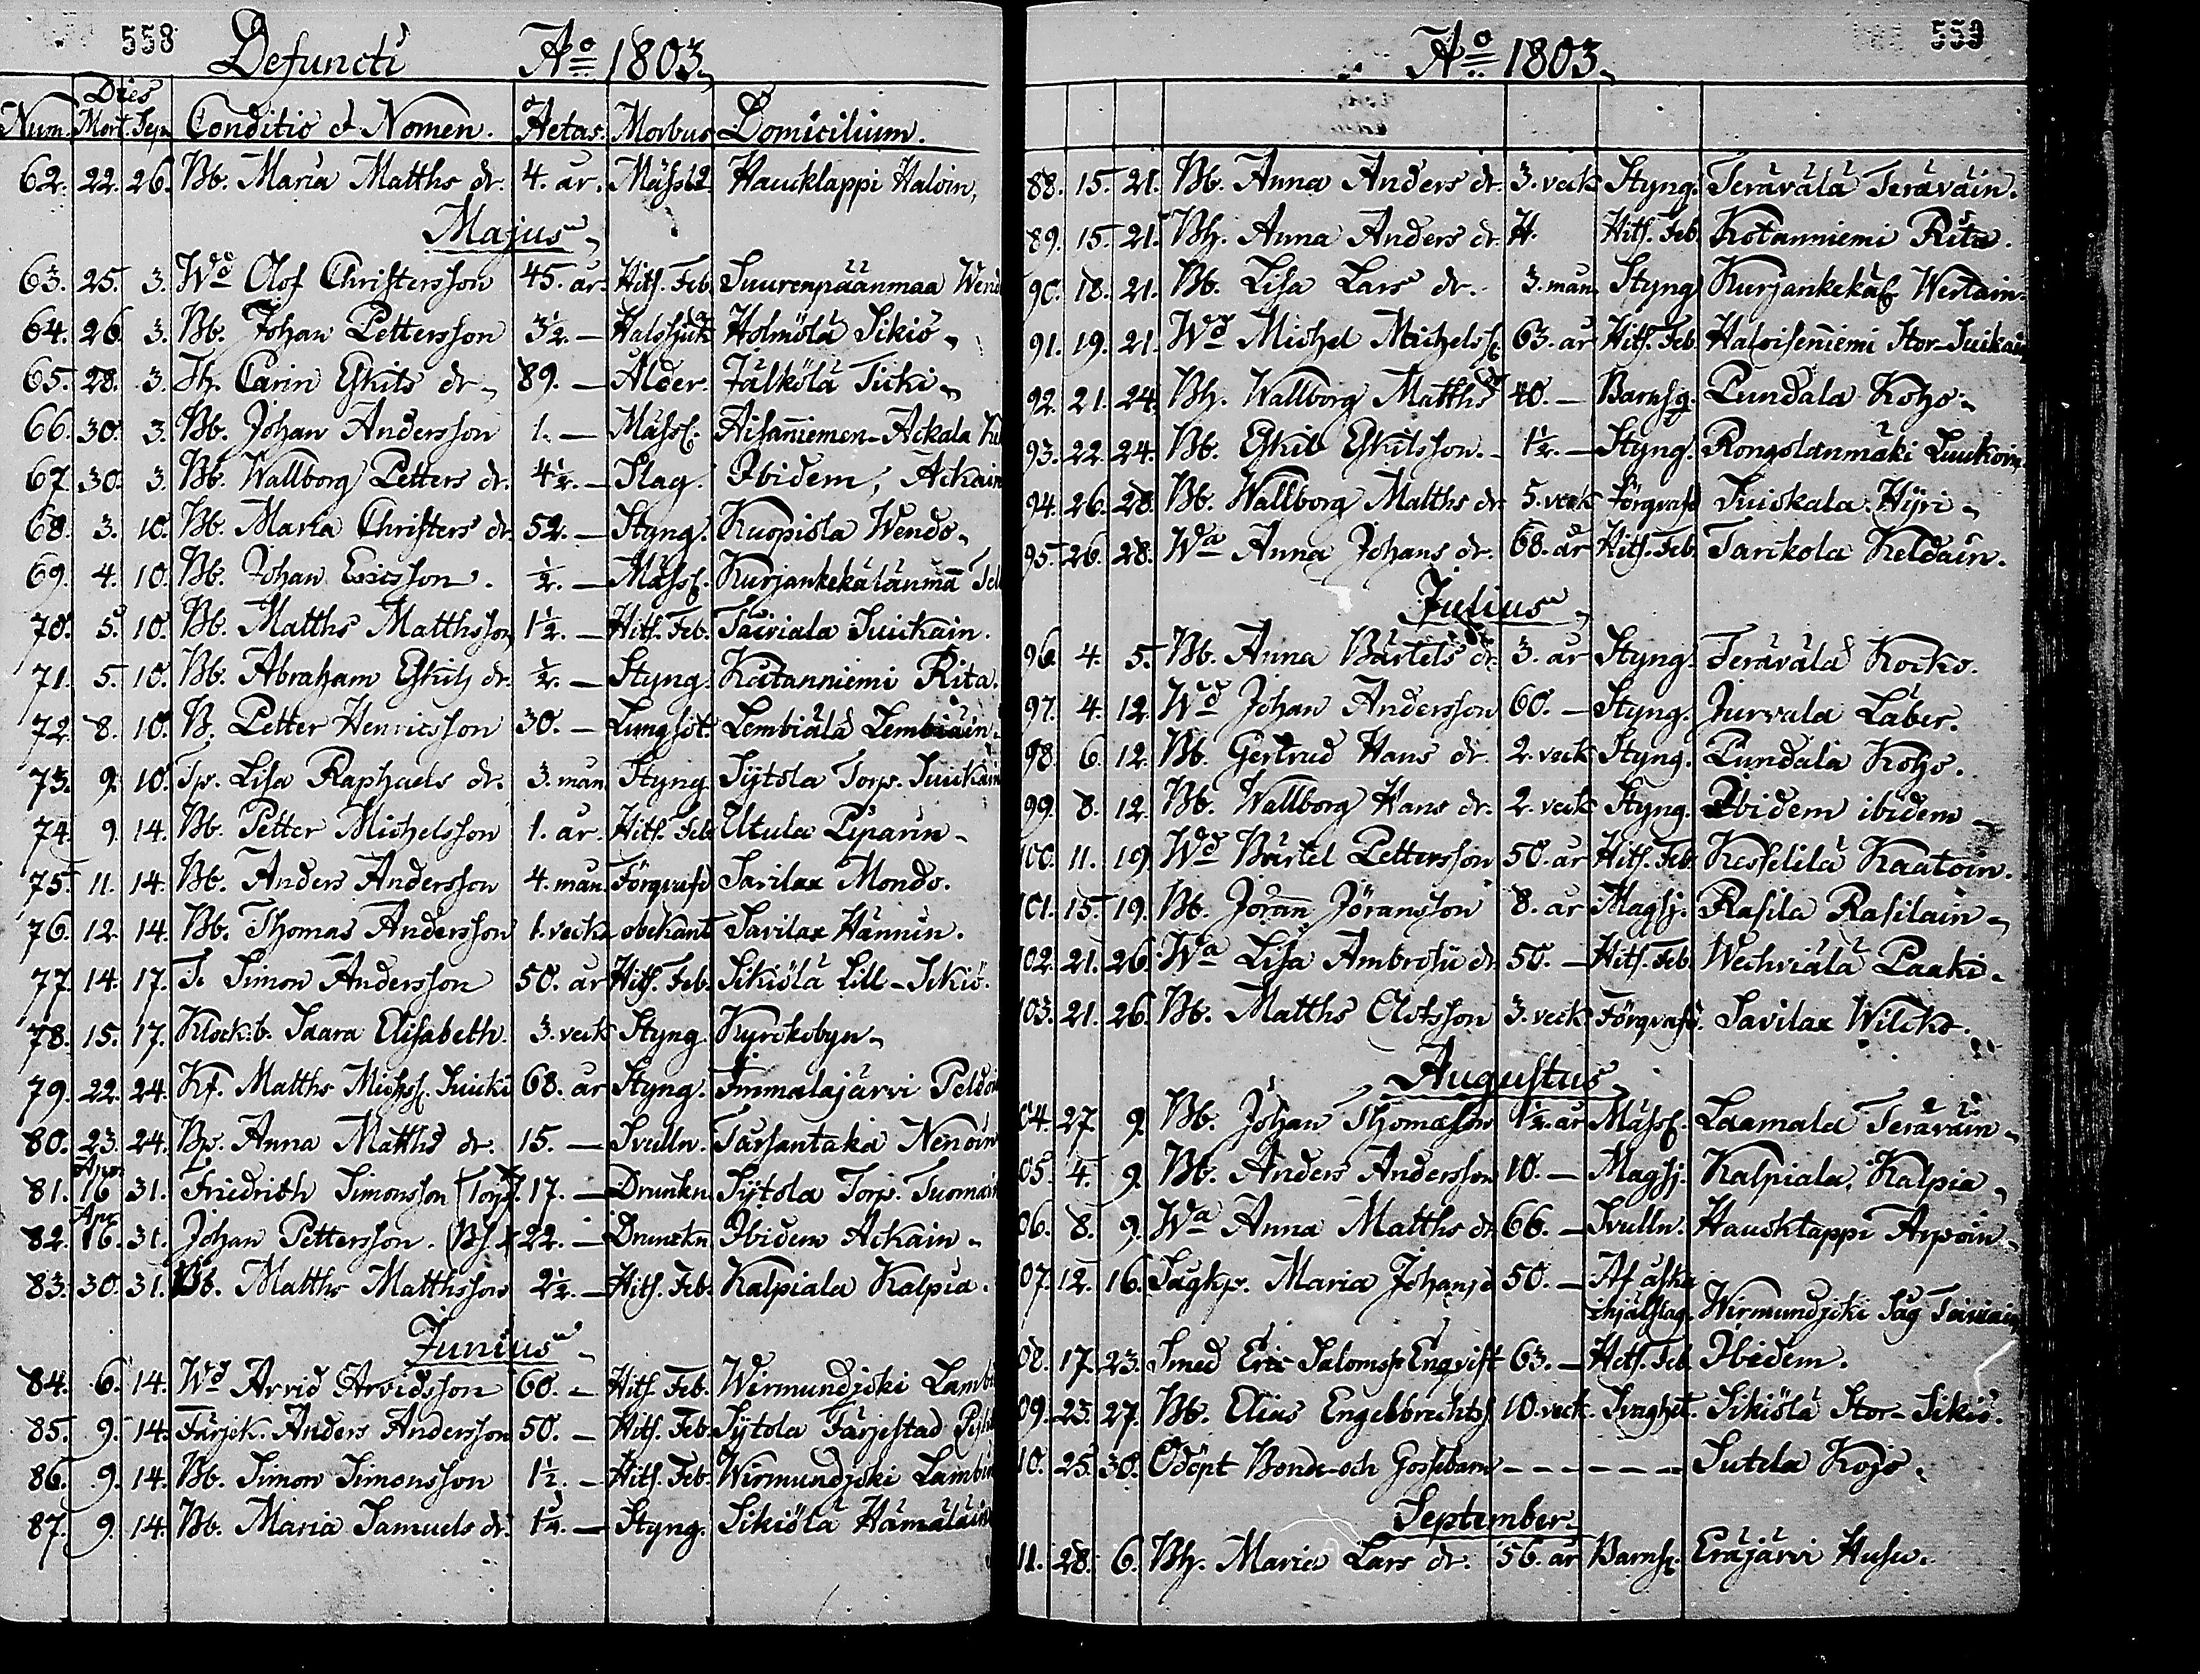 558
Defuncti Aº 1803.
Dies
Num. Mort. Sep. Conditio et Nomen. Aetas. Morbus Domicilium.
62. 22. 26. Bb. Maria Matths dr. 4. år. Mässl. Haucklappi Haloin,
Majus
63. 25. 3. Wd Olof Christersson 45. år. Hits. Feb. Suurenpäänmaa
64. 26 3. Bb. Johan Pettersson 3½. — Halssjuk Holmölä Sikiö
65. 28. 3. Jh. Carin Eskils dr 89. — Ålder. Jälkölä Ticki
66. 30. 3. Bb. Johan Andersson 1. — Mässl. Aisaniemen-Ackala
67. 30. 3. Bb. Wallborg Petters dr. 4½. — Slag. Ibidem, Ackain
68. 3. 10. Bb. Maria Christers dr. 52. — Styng. Kuopiola Wendo
69. 4. 10. Bb. Johan Ericsson. ½. — Mässl. Kurjankekälänmä
70. 5. 10. Bb. Matths Matthsson 1½. — Hits. Feb. Tairiala Suikain.
71. 5. 10. Bb. Abraham Eskils dr. ½. — Styng. Kotanniemi Rita.
72. 8. 10. B. Petter Henricsson 30. — Lungsot. Lembiälä Lembiäin.
73. 9. 10. Tp. Lisa Raphaels dr. 3. mån. Styng. Sijtola Torp. Suikain
74. 9. 14. Bb. Petter Michelsson 1. år. Hits. Feb Utula Piparin
75. 11. 14. Bb. Anders Andersson 4. mån. Förgrafd Savilax Mondo.
76. 12. 14. Bb. Thomas Andersson 1. vecka obekant Savilax Hännin.
77. 14. 17. T. Simon Andersson 50. år Hits. Feb. Sikiölä Lill-Sikiö.
78. 15. 17. Klock.b. Saara Elisabeth. 3. veck Styng. Kyrckobyn
79. 22. 24. Kf. Matths Michss. Suicki 68. år Styng. Immalajärvi
80. 23. 24. Bp. Anna Matths dr. 15. — Svulln. Tarsantaka Nenoin
Apr.
81. 16 31. Friedrich Simonsson (Torp. 17. — Drunkn. Sijtola Torp. Tuomoin
Apr.
82. 16. 31. Johan Pettersson. 22. — Drunckn Ibidem Ackain
83. 30. 31. Bb. Matths Matthsson 2½. — Hits. Feb. Kalpiala Kalpia.
Junius
84. 6. 14. Wd Arvid Arvidsson 60. — Hits. Feb. Wirmundjoki
85. 9. 14. Färjek. Anders Andersson 50. — Hits. Feb. Sijtola Färjestad
86. 9. 14. Bb. Simon Simonsson 1½. — Hits. Feb. Wirmundjoki
87. 9. 14. Bb. Maria Samuels dr. 1¼. — Styng. Sikiölä Hämäläin
559
Aº 1803.
88. 15. 21. Bb. Anna Anders dr. 3. veck Styng. Terävälä Teräväin.
89. 15. 21. Bh. Anna Anders dr. Hits. Feb. Kotanniemi Rita.
90. 18. 21. Bb. Lisa Lars dr. 3. mån Styng Kurjankekäl.
91. 19. 21. Wd Michel Michelss. 63. år Hits. Feb. Haloiseniemi Stor-Suikain
92. 21. 24. Bh. Wallborg Matths dr 40. — Barnsg. Pundala Koho
93. 22. 24. Bb. Eskil Eskilsson. 1½. — Styng. Rongolanmäki Luukoin
94. 26. 28. Bb. Wallborg Matths dr. 5. veck Förgrafd Suickala Hijri
95. 26. 28. Wa Anna Johans dr. 68. år Hits. Feb. Tarikola Keldain.
Julius
96 4. 5. Bb. Anna Bärtels dr. 3. år Styng. Terävälä Kocko.
97. 4. 12. Wd Johan Andersson 60. — Styng. Jurvala Läber.
98. 6. 12. Bb. Gertrud Hans dr. 2. veck Styng. Pundala Koho.
99. 8. 12. Bb. Wallborg Hans dr. 2. veck Styng. Ibidem ibidem
100. 11. 19. Wd Bärtel Pettersson 50. år Hits. Feb. Kesselilä Kaatoin.
101. 15. 19. Bb. Joran Joransson 8. år Magsj. Rasila Rasilain
102. 21. 26. Wa Lisa Ambrosii dr. 50. — Hits. Feb. Wechviälä Paaki
103. 21. 26. Bb. Matths Olofsson 3. veck Förgrafd. Savilax Wilcko.
Augustus
04. 27. 9. Bb. Johan Thomasson 1½. år Mässl. Laamala Teräväin
05. 4. 9. Bb. Anders Andersson 10. — Magsj. Kalpiala, Kalpia
06. 8. 9. Wa Anna Matths dr 66. — Svulln. Haucklappi Arpoin
07. 12. 16. Sågkp. Maria Johans d 50. — Af åska
ihjälslag. Wirmundjoki Såg Taiviain
08. 17. 23. Smed Eric Salomss Enqvist 63. — Hits. Feb. Ibidem.
09. 25. 27. Bb. Elias Engelbrechtss. 10. veck. Svaghet. Sikiölä Stor-Sikiö.
10. 25. 30. Odöpt Bonde och Gossebarn – – – – – – Sutela Kojo
September.
11. 28. 6. Bh. Maria Lars dr. 56. år Barns. Eräjärvi Husu.